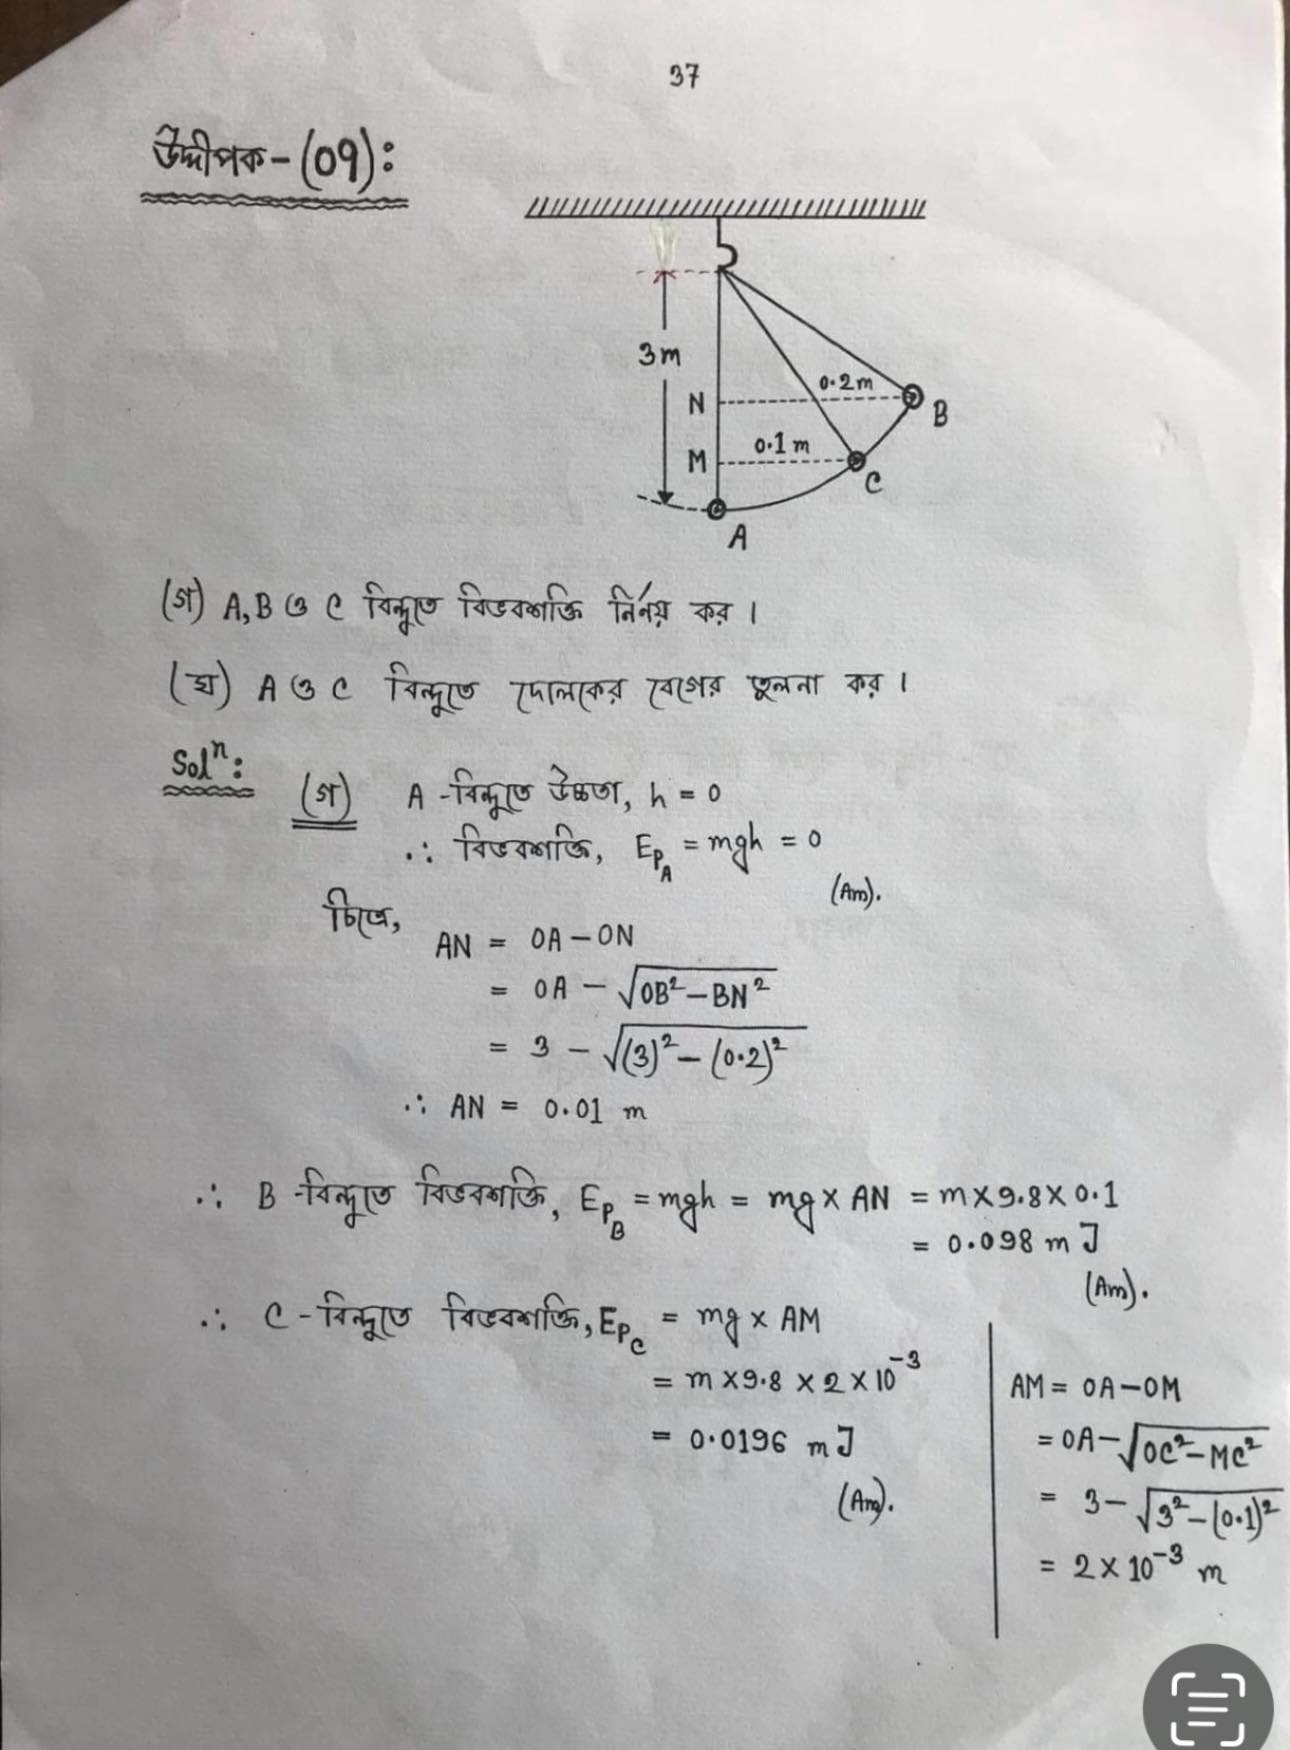 37
উদ্দীপক-(09):
3m
N
0.2m
B
M
0.1m
C
A
(গ) A, B ও C বিন্দুতে বিভবশক্তি নির্নয় কর।
(ঘ) A ও C বিন্দুতে দোলকের বেগের তুলনা কর।
Solⁿ:
(গ) A-বিন্দুতে উচ্চতা, h = 0
∴ বিভবশক্তি, E_{P_A} = mgh = 0
(Ans).
চিত্রে,
AN = OA-ON
= OA - √(OB²-BN²)
= 3 - √((3)²-(0.2)²)
∴ AN = 0.01 m
∴ B-বিন্দুতে বিভবশক্তি, E_{P_B} = mgh = mg×AN = m×9.8×0.1
= 0.098 m J
(Ans).
∴ C-বিন্দুতে বিভবশক্তি, E_{P_C} = mg × AM
= m×9.8×2×10⁻³
= 0.0196 m J
(Ans).
AM = OA-OM
= OA-√(OC²-MC²)
= 3-√(3²-(0.1)²)
= 2×10⁻³ m